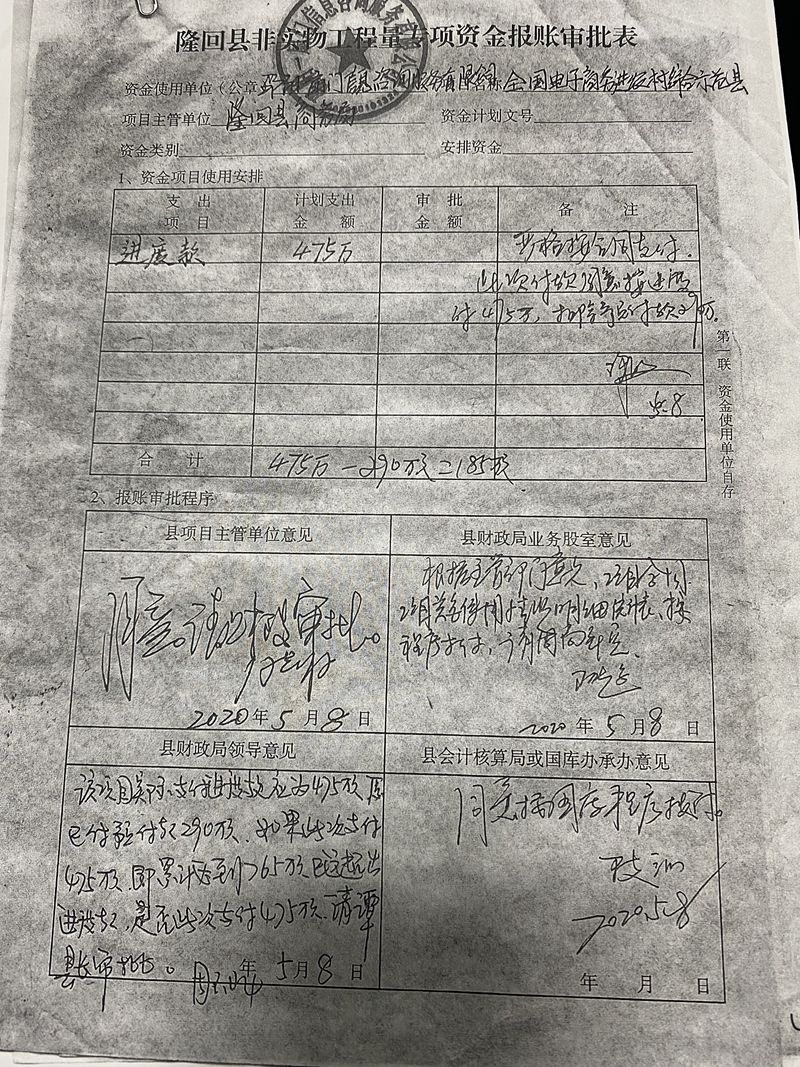 信息咨询服务有限公
隆回县非实物工程量专项资金报账审批表
资金使用单位（公章） 门信息咨询服务有限 名称 全国电子商务进农村综合示范县
项目主管单位 隆回县商务局 资金计划文号
资金类别 安排资金
1、资金项目使用安排
支出项目 计划支出金额 审批金额 备注
进度款 475万 严格按合同支付.
此次付款同意按进度
付475万，扣除 付款290万.
5.8
合计 475万-290万元=185万元
第一联 资金使用单位自存
2、报账审批程序
县项目主管单位意见
同意。请 审批。
2020年5月8日
县财政局业务股室意见
根据主管部门意见，项目合同
项目资金使用情况明细 表，按
程序拨付，
2020年5月8日
县财政局领导意见
该项目实际支付进度款应为475万，原
已付预付款290万，如果此次支付
475万，即累计达到765万，已超出
进度款，是否此次支付475万，请谭
县长审批。
年5月8日
县会计核算局或国库办承办意见
同意按国库程序拨付。
2020.5.8
年 月 日